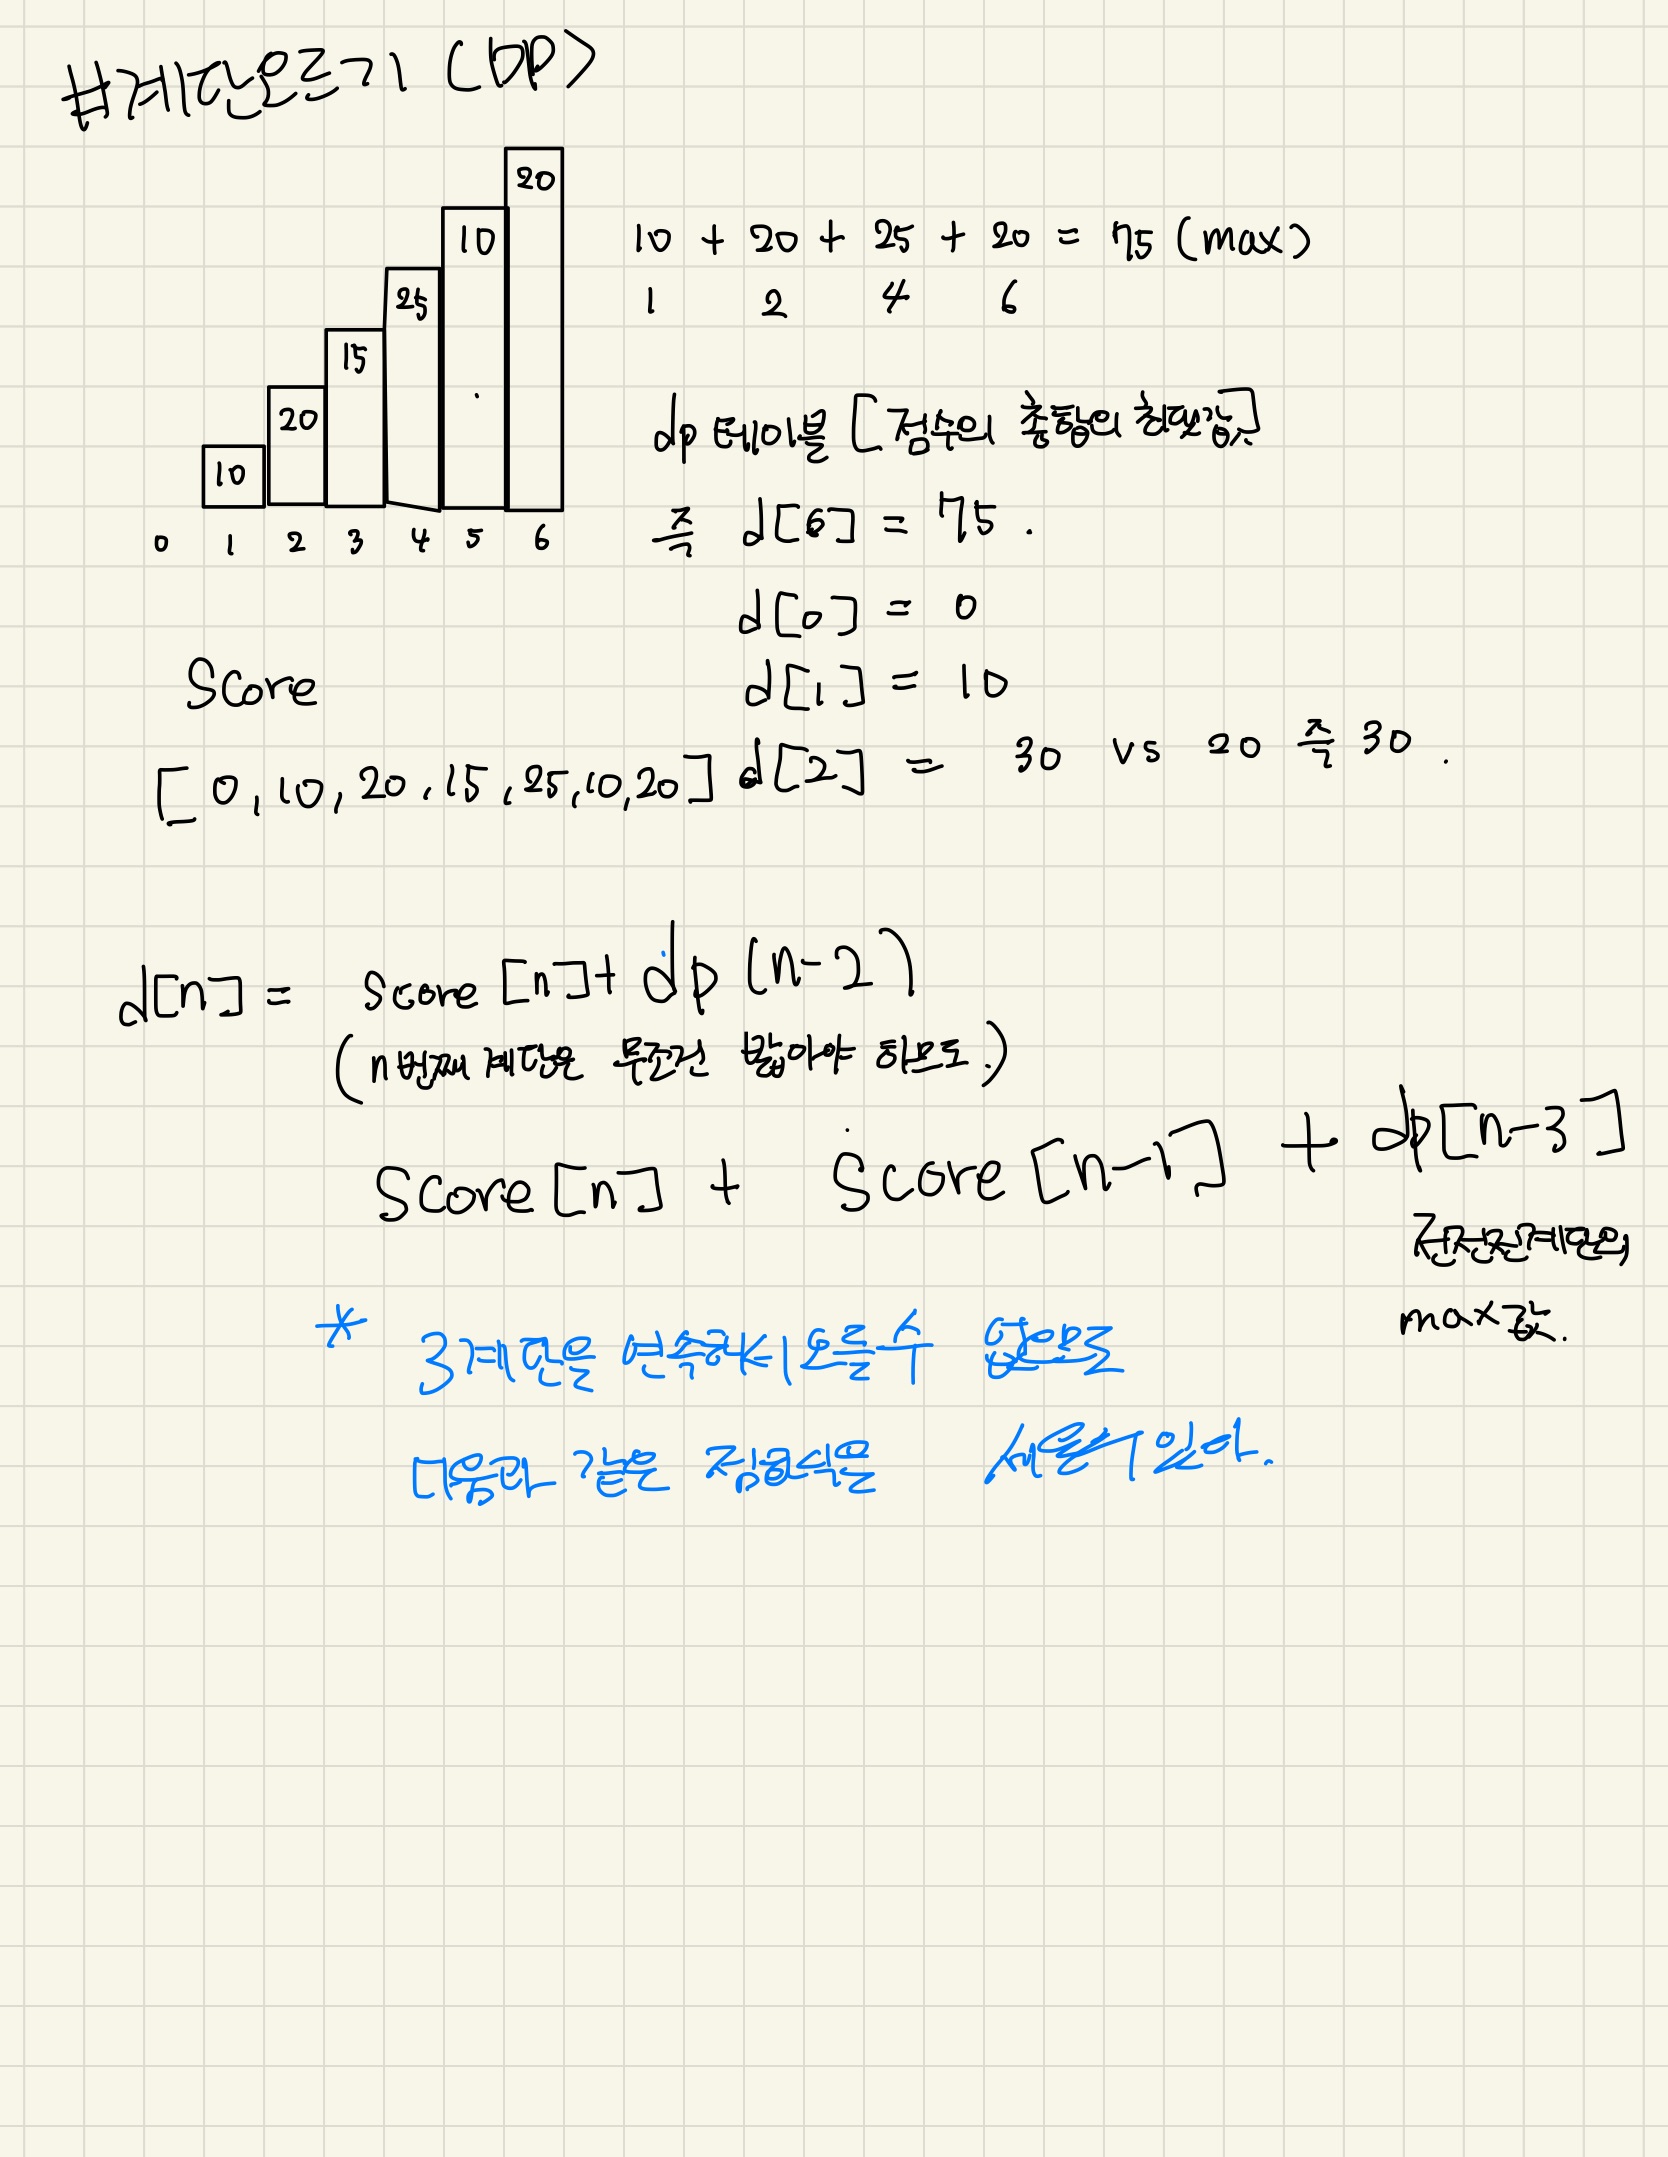 #계단오르기 (DP)
20
10
25
15
20
10
0 1 2 3 4 5 6
10 + 20 + 25 + 20 = 75 (max)
1 2 4 6
dp 테이블 [점수의 총합의 최댓값]
즉 d[6] = 75.
d[0] = 0
d[1] = 10
d[2] = 30 vs 20 즉 30.
Score
[0, 10, 20, 15, 25, 10, 20]
d[n] = score [n] + dp (n-2)
(n번째 계단은 무조건 밟아야 하므로.)
Score [n] + Score [n-1] + dp[n-3]
전전전계단의
max값.
* 3계단을 연속해서 오를수 없으므로
다음과 같은 점화식을 세울수 있다.